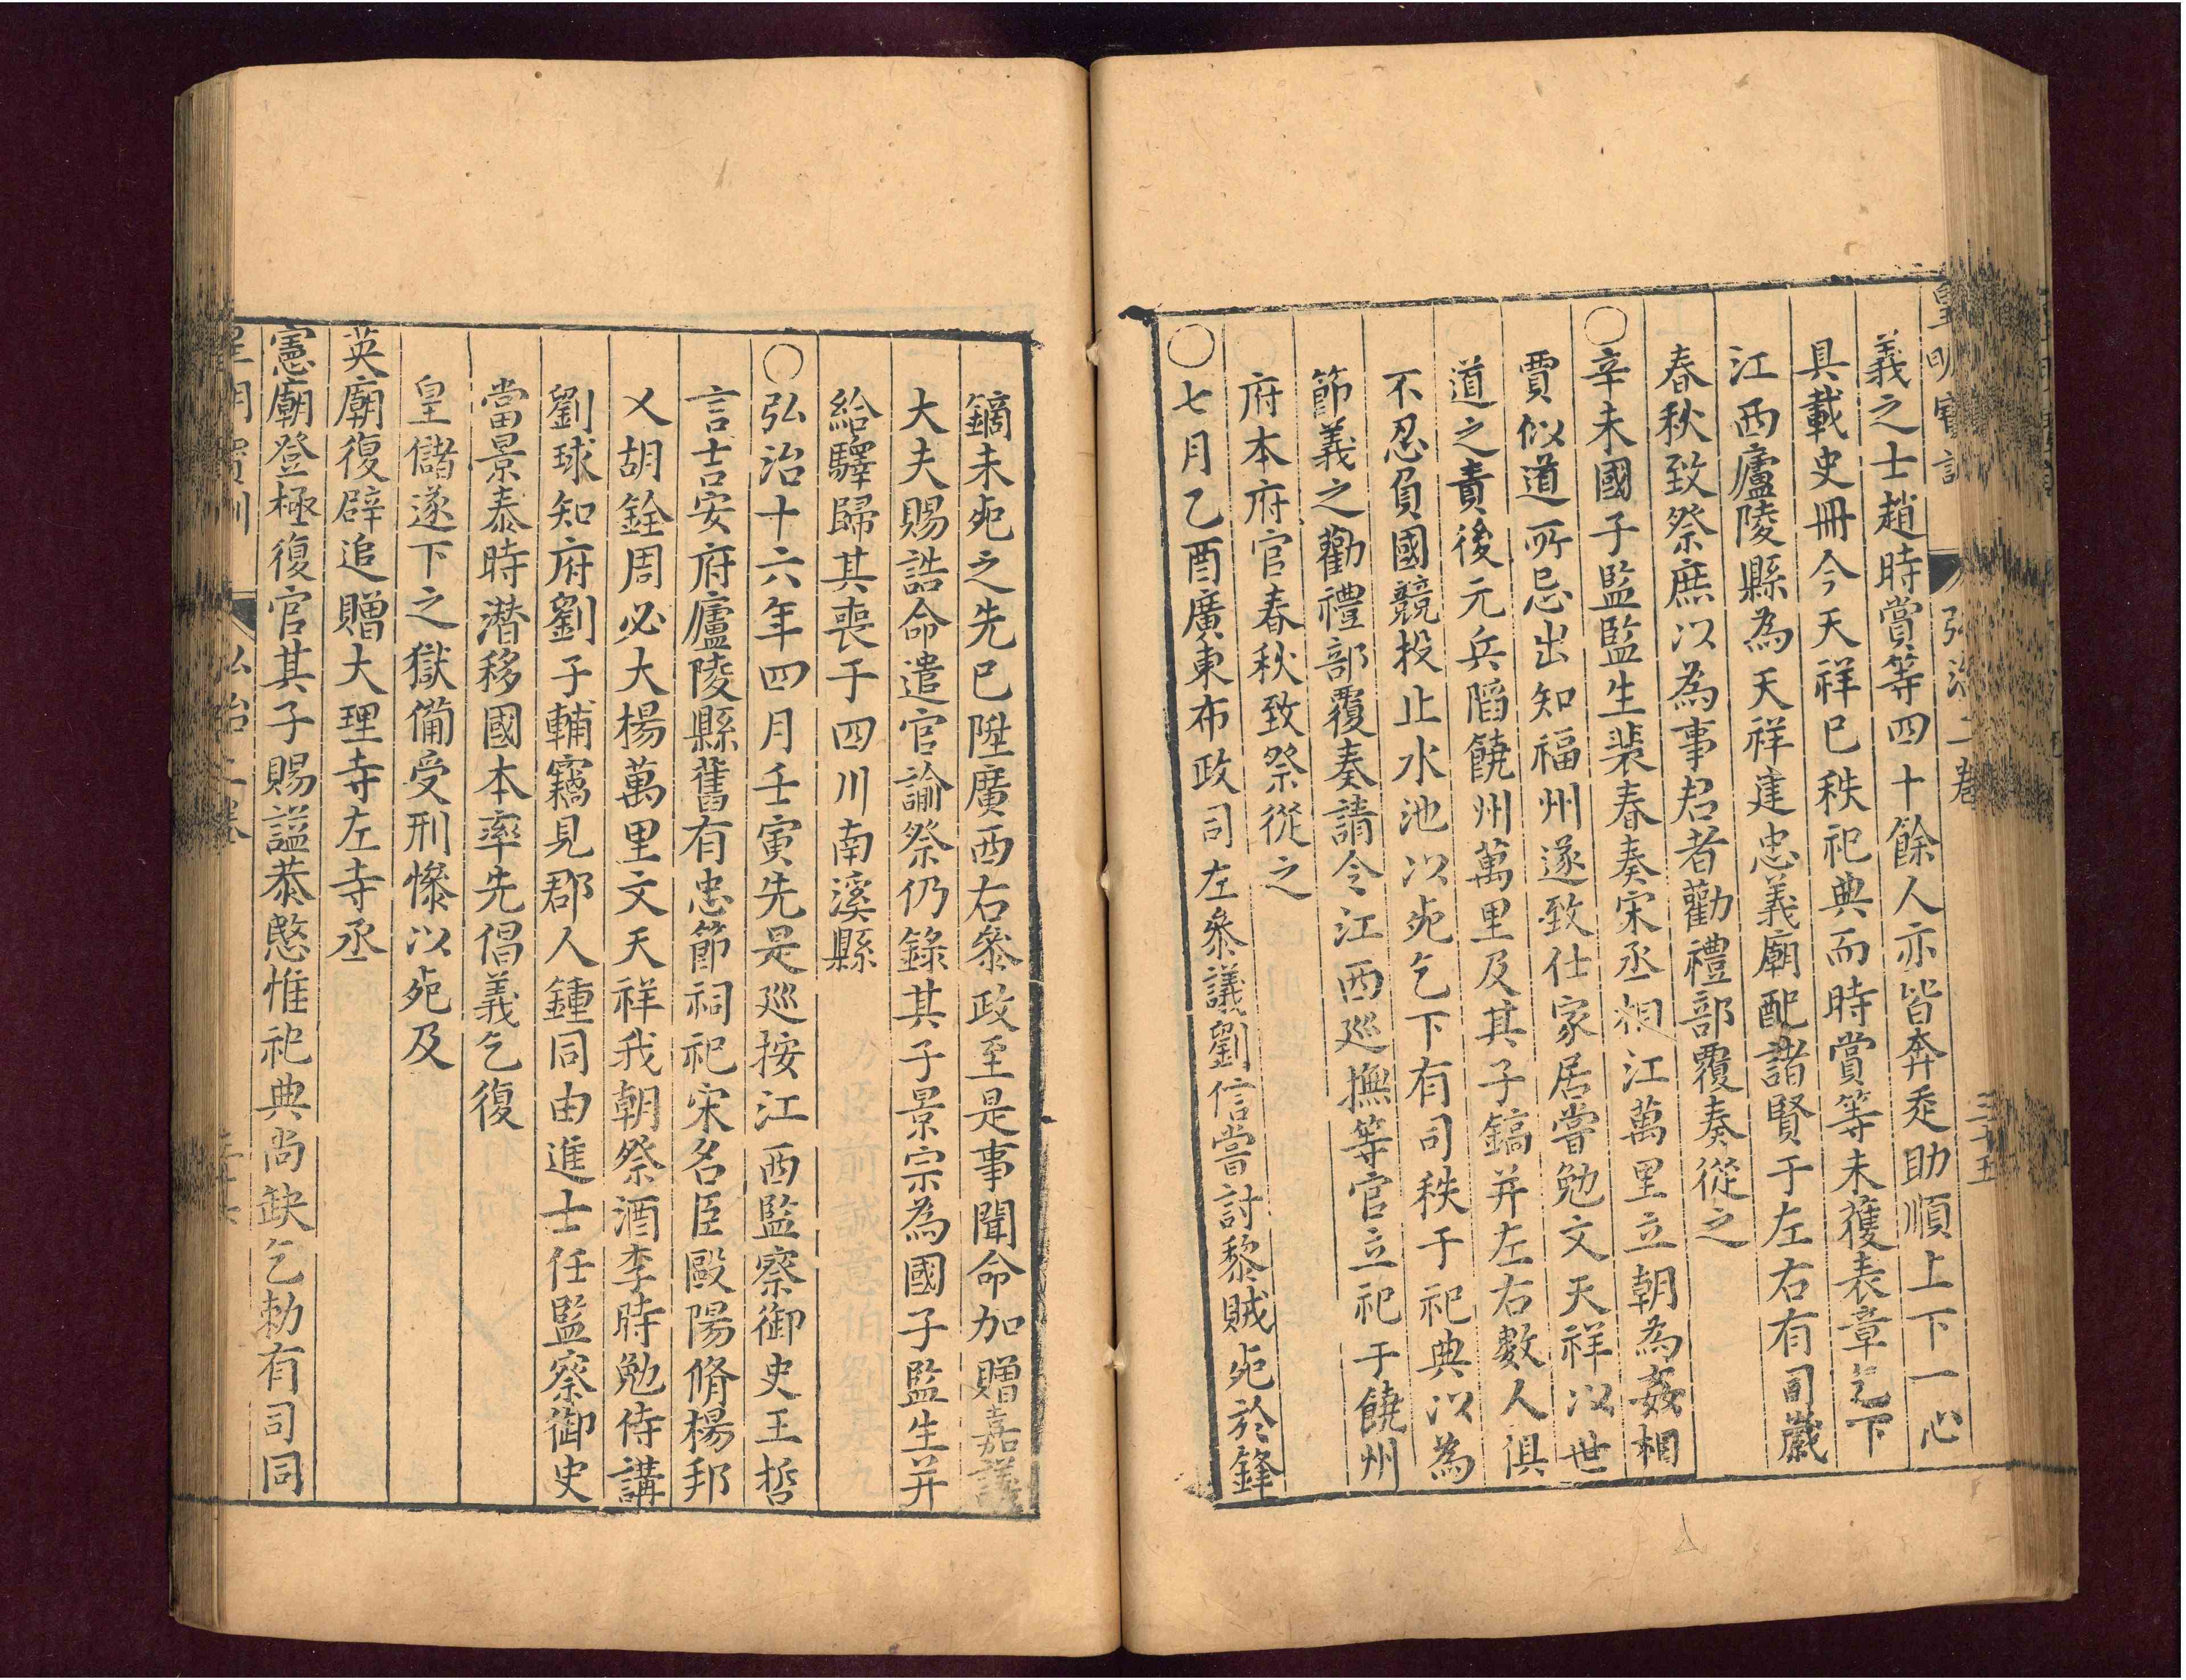 皇明寶訓 弘治二卷 三十五
義之士趙時賞等四十餘人亦皆奔走助順上下一心
具載史冊今天祥已秩祀典而時賞等未獲表章乞下
江西廬陵縣為天祥建忠義廟配諸賢于左右有司歲
春秋致祭庶以為事君者勸禮部覆奏從之
○辛未國子監監生裴春奏宋丞相江萬里立朝為姦相
賈似道所忌出知福州遂致仕家居嘗勉文天祥以世
道之責後元兵陷饒州萬里及其子鎬并左右數人俱
不忍負國競投止水池以死乞下有司秩于祀典以為
節義之勸禮部覆奏請令江西巡撫等官立祀于饒州
府本府官春秋致祭從之
○七月乙酉廣東布政司左參議劉信嘗討黎賊死於鋒
鏑未死之先已陞廣西右參政至是事聞命加贈嘉議
大夫賜誥命遣官諭祭仍錄其子景宗為國子監生并
給驛歸其喪于四川南溪縣
○弘治十六年四月壬寅先是巡按江西監察御史王哲
言吉安府廬陵縣舊有忠節祠祀宋名臣歐陽脩楊邦
乂胡銓周必大楊萬里文天祥我朝祭酒李時勉侍講
劉球知府劉子輔竊見郡人鍾同由進士任監察御史
當景泰時潛移國本率先倡義乞復
皇儲遂下之獄備受刑慘以死及
英廟復辟追贈大理寺左寺丞
憲廟登極復官其子賜謚恭愍惟祀典尚缺乞勅有司同
皇明寶訓 弘治二卷